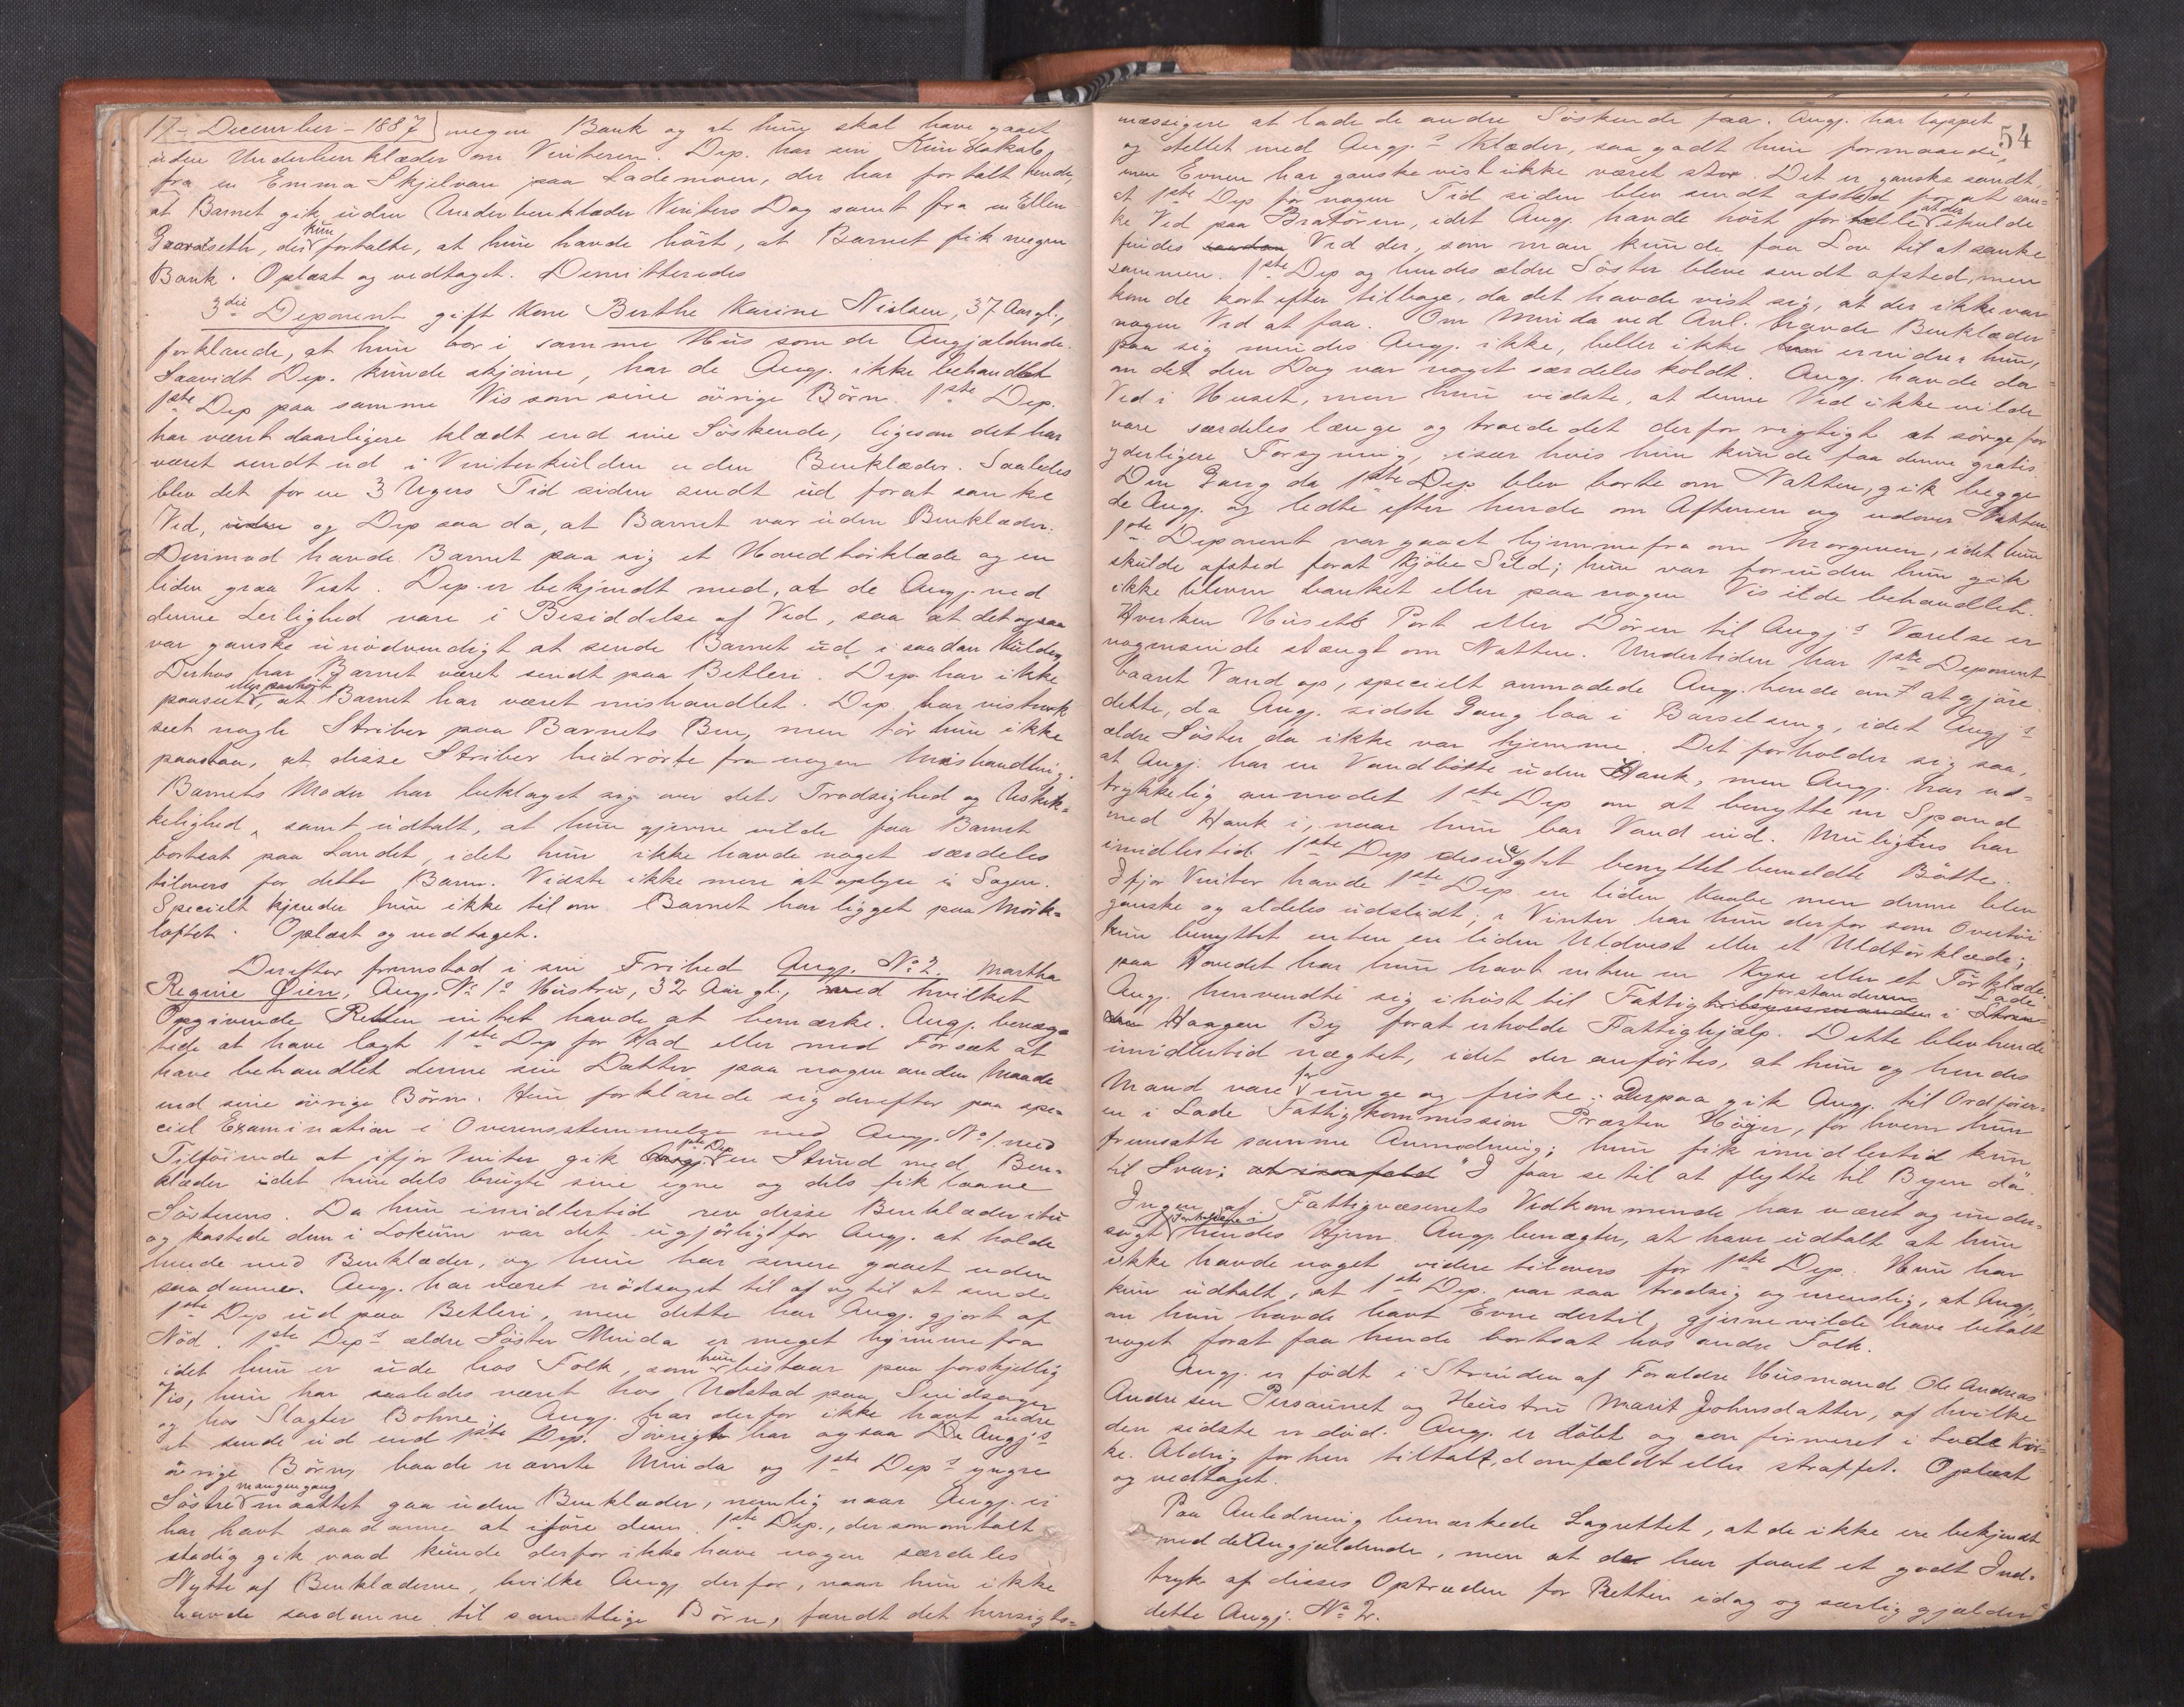 17 – December – 1887 megen Bank og at hun skal have gaaet
uden Underbenklæder om Vinteren. Dep. har sin Kundskab
fra en Emma Skjelvan paa Lademoen, der har fortalt hende,
at Barnet gik uden Underbenklæder Vinters Dag samt fra en Ellen
der kun fortalte, at hun havde hört, at Barnet fik megen
Bank. Oplæst og vedtaget. Demitteredes
3die Deponent gift Kone Berthe Karine Nielsen, 37 Aar gl.,
forklarede, at hun bor i samme Hus som de Angjældende.
Saavidt Dep. kunde skjönne, har de Angj. ikke behandlet
1ste Dep paa samme Vis som sine övrige Börn. 1ste Dep.
har været daarligere klædt end sine Söskende, ligesom det har
været sendt ud i Vinterkulden uden Benklæder. Saaledes
blev det for en 3 Ugers Tid siden sendt ud forat sanke
Ved, uden og Dep saa da, at Barnet var uden Benklæder.
Derimod havde Barnet paa sig et Hovedtörklæde og en
liden graa Vest. Dep. er bekjendt med, at de Angj. ved
denne Leilighed vare i Besiddelse af Ved, saa at det ogsaa
var ganske unödvendigt at sende Barnet ud i saadan Kulde.
Derhos har Barnet været sendt paa Betleri. Dep har ikke
paaseet eller paahört, at Barnet har været mishandlet. Dep. har vistnok
seet nogle Striber paa Barnets Ben, men tör hun ikke
paastaa, at disse Striber hidrörte fra nogen Mishandling.
Barnets Moder har beklaget sig over dets Trodsighed og Uskik-
kelighed, samt udtalt, at hun gjerne vilde faa Barnet
bortsat paa Landet, idet hun ikke havde noget særdeles
tilovers for dette Barn. Vidste ikke mere at oplyse i Sagen.
Specielt kjender hun ikke til om Barnet har ligget paa Mörk-
loftet. Oplæst og vedtaget.
Derefter fremstod i sin Frihed Angj. No 2 Martha
Regine Øien, Angj. No 1s Hustru, 32 Aar gl., med hvilket
Opgivende Retten intet havde at bemærke. Angj. benæg-
tede at have lagt 1ste Dep for Had eller med Forsæt at
have behandlet denne sin Datter paa nogen anden Maade
end sine övrige Börn. Hun forklarede sig derefter paa spe-
ciel Examination i Overensstemmelse med Angj. No 1 med
Tilföiende at ifjor Vinter gik Angj. 1ste Dep en Stund med Ben-
klæder idet hun dels brugte sine egne og dels fik laane
Sösterens. Da hun imidlertid rev disse Benklæder itu
og kastede dem i Lokum var det ugjörligt for Angj. at holde
hende med Benklæder, og hun har senere gaaet uden
saadanne. Angj. har været nödsaget til af og til at sende
1ste Dep ud paa Betleri, men dette har Angj. gjort af
Nöd. 1ste Deps ældre Söster Minda er meget hjemmefra
idet hun er ude hos Folk, som hun bistaar paa forskjellig
Vis, hun har saaledes været hos Udstad paa
og hos Slagter Bohne; Angj. har derfor ikke havt andre
at sende ud end 1ste Dep. Iövrigt har ogsaa De Angj's
övrige Börn, baade nævnte Minda og 1ste Deps yngre
Söstre mangengang maattet gaa uden Benklæder, nemlig naar Angj. ei
har havt saadanne at iföre dem. 1ste Dep., der som omtalt
stadig gik vaad kunde derfor ikke have nogen særdeles
Nytte af Benklæderne, hvilke Angj derfor, naar hun ikke
havde saadanne til samtlige Börn, fandt det hensigts-
54
mæssigere at lade de andre Söskende faa. Angj. har lappet
og stellet med Angj.s Klæder, saa godt hun formaaede,
men Evnen har ganske vist ikke været stor. Det er ganske sandt,
at 1ste Dep for nogen Tid siden blev sendt afsted for at san-
ke Ved paa Bratören, idet Angj havde hört fortælle at der skulde
findes saadan Ved der, som man kunde faa Lov til at sanke
sammen. 1ste Dep og hendes ældre Söster bleve sendt afsted, men
kom de kort efter tilbage, da det havde vist sig, at der ikke var
nogen Ved at faa. Om Minda ved Anl. havde Benklæder
paa sig mindes Angj. ikke, heller ikke hun erindrer hun,
om det den Dag var noget særdeles koldt. Angj. havde da
Ved i Huset, men hun vidste, at denne Ved ikke vilde
vare særdeles længe og troede det derfor rigtigt at sörge for
yderligere Forsyning, især hvis hun kunde faa denne gratis.
Den Gang da 1ste Dep blev borte om Natten, gik begge
de Angj. og ledte efter hende om Aftenen og udover Natten.
1ste Deponent var gaaet hjemmefra om Morgenen, idet hun
skulde afsted forat kjöbe Sild; hun var forinden hun gik
ikke bleven banket eller paa nogen Vis ilde behandlet.
Hverken Husets Port eller Dören til Angj.s Værelse er
nogensinde stængt om Natten. Undertiden har 1ste Deponent
baaret Vand op, specielt anmodede Angj. hende om at gjöre
dette, da Angj. sidste Gang laa i Barselseng, idet Angj.s
ældre Söster da ikke var hjemme. Det forholder sig saa,
at Angj. har en Vandbötte uden Hank, men Angj. har ud-
trykkelig anmodet 1ste Dep om at benytte en Spand
med Hank i, naar hun bar Vand ind. Muligens har
imidlertid 1ste Dep desuagtet benyttet bemeldte Bötte.
Ifjor Vinter havde 1ste Dep en liden Kaabe men denne blev
ganske og aldeles udslidt, i Vinter har hun derfor som Overtöi
kun benyttet enten en liden Uldvest eller et Uldtörklæde;
paa Hovedet har hun havt enten en Kyse eller et Törklæde.
Angj. henvendte sig ihöst til Fattigtilsynsmanden forstanderen i Strin- Lade
den Haagen By forat erholde Fattighjælp. Dette blev hende
imidlertid nægtet, idet der anförtes, at hun og hendes
Mand vare for unge og friske; Derpaa gik Angj. til Ordförer-
en i Lade Fattigkommission Præsten Höyer, for hvem hun
fremsatte samme Anmodning; hun fik imidlertid kun
til Svar: "I faar se til at flytte til Byen da".
Ingen af Fattigvæsenets Vedkommende har været og under-
sögt Forholdene i hendes Hjem. Angj. benægter, at have udtalt at hun
ikke havde noget videre tilovers for 1ste Dep. Hun har
kun udtalt, at 1ste Dep. var saa trodsig og urenslig, at Angj.
om hun havde havt Evne dertil, gjerne vilde have betalt
noget forat faa hende bortsat hos andre Folk.
Angj. er födt i Strinden af Forældre Husmand Ole Andreas
Andresen Persaunet og Hustru Marit Johnsdatter, af hvilke
den sidste er död. Angj. er döbt og confirmeret i Lade Kir-
ke. Aldrig förhen tiltalt, domfældt eller straffet. Oplæst
og vedtaget.
Paa Anledning bemærkede Lagrettet, at de ikke ere bekjendt
med de Angjældende, men at de har faaet et godt Ind-
tryk af disses Optræden for Retten idag og særlig gjælder
dette Angj. No 2.